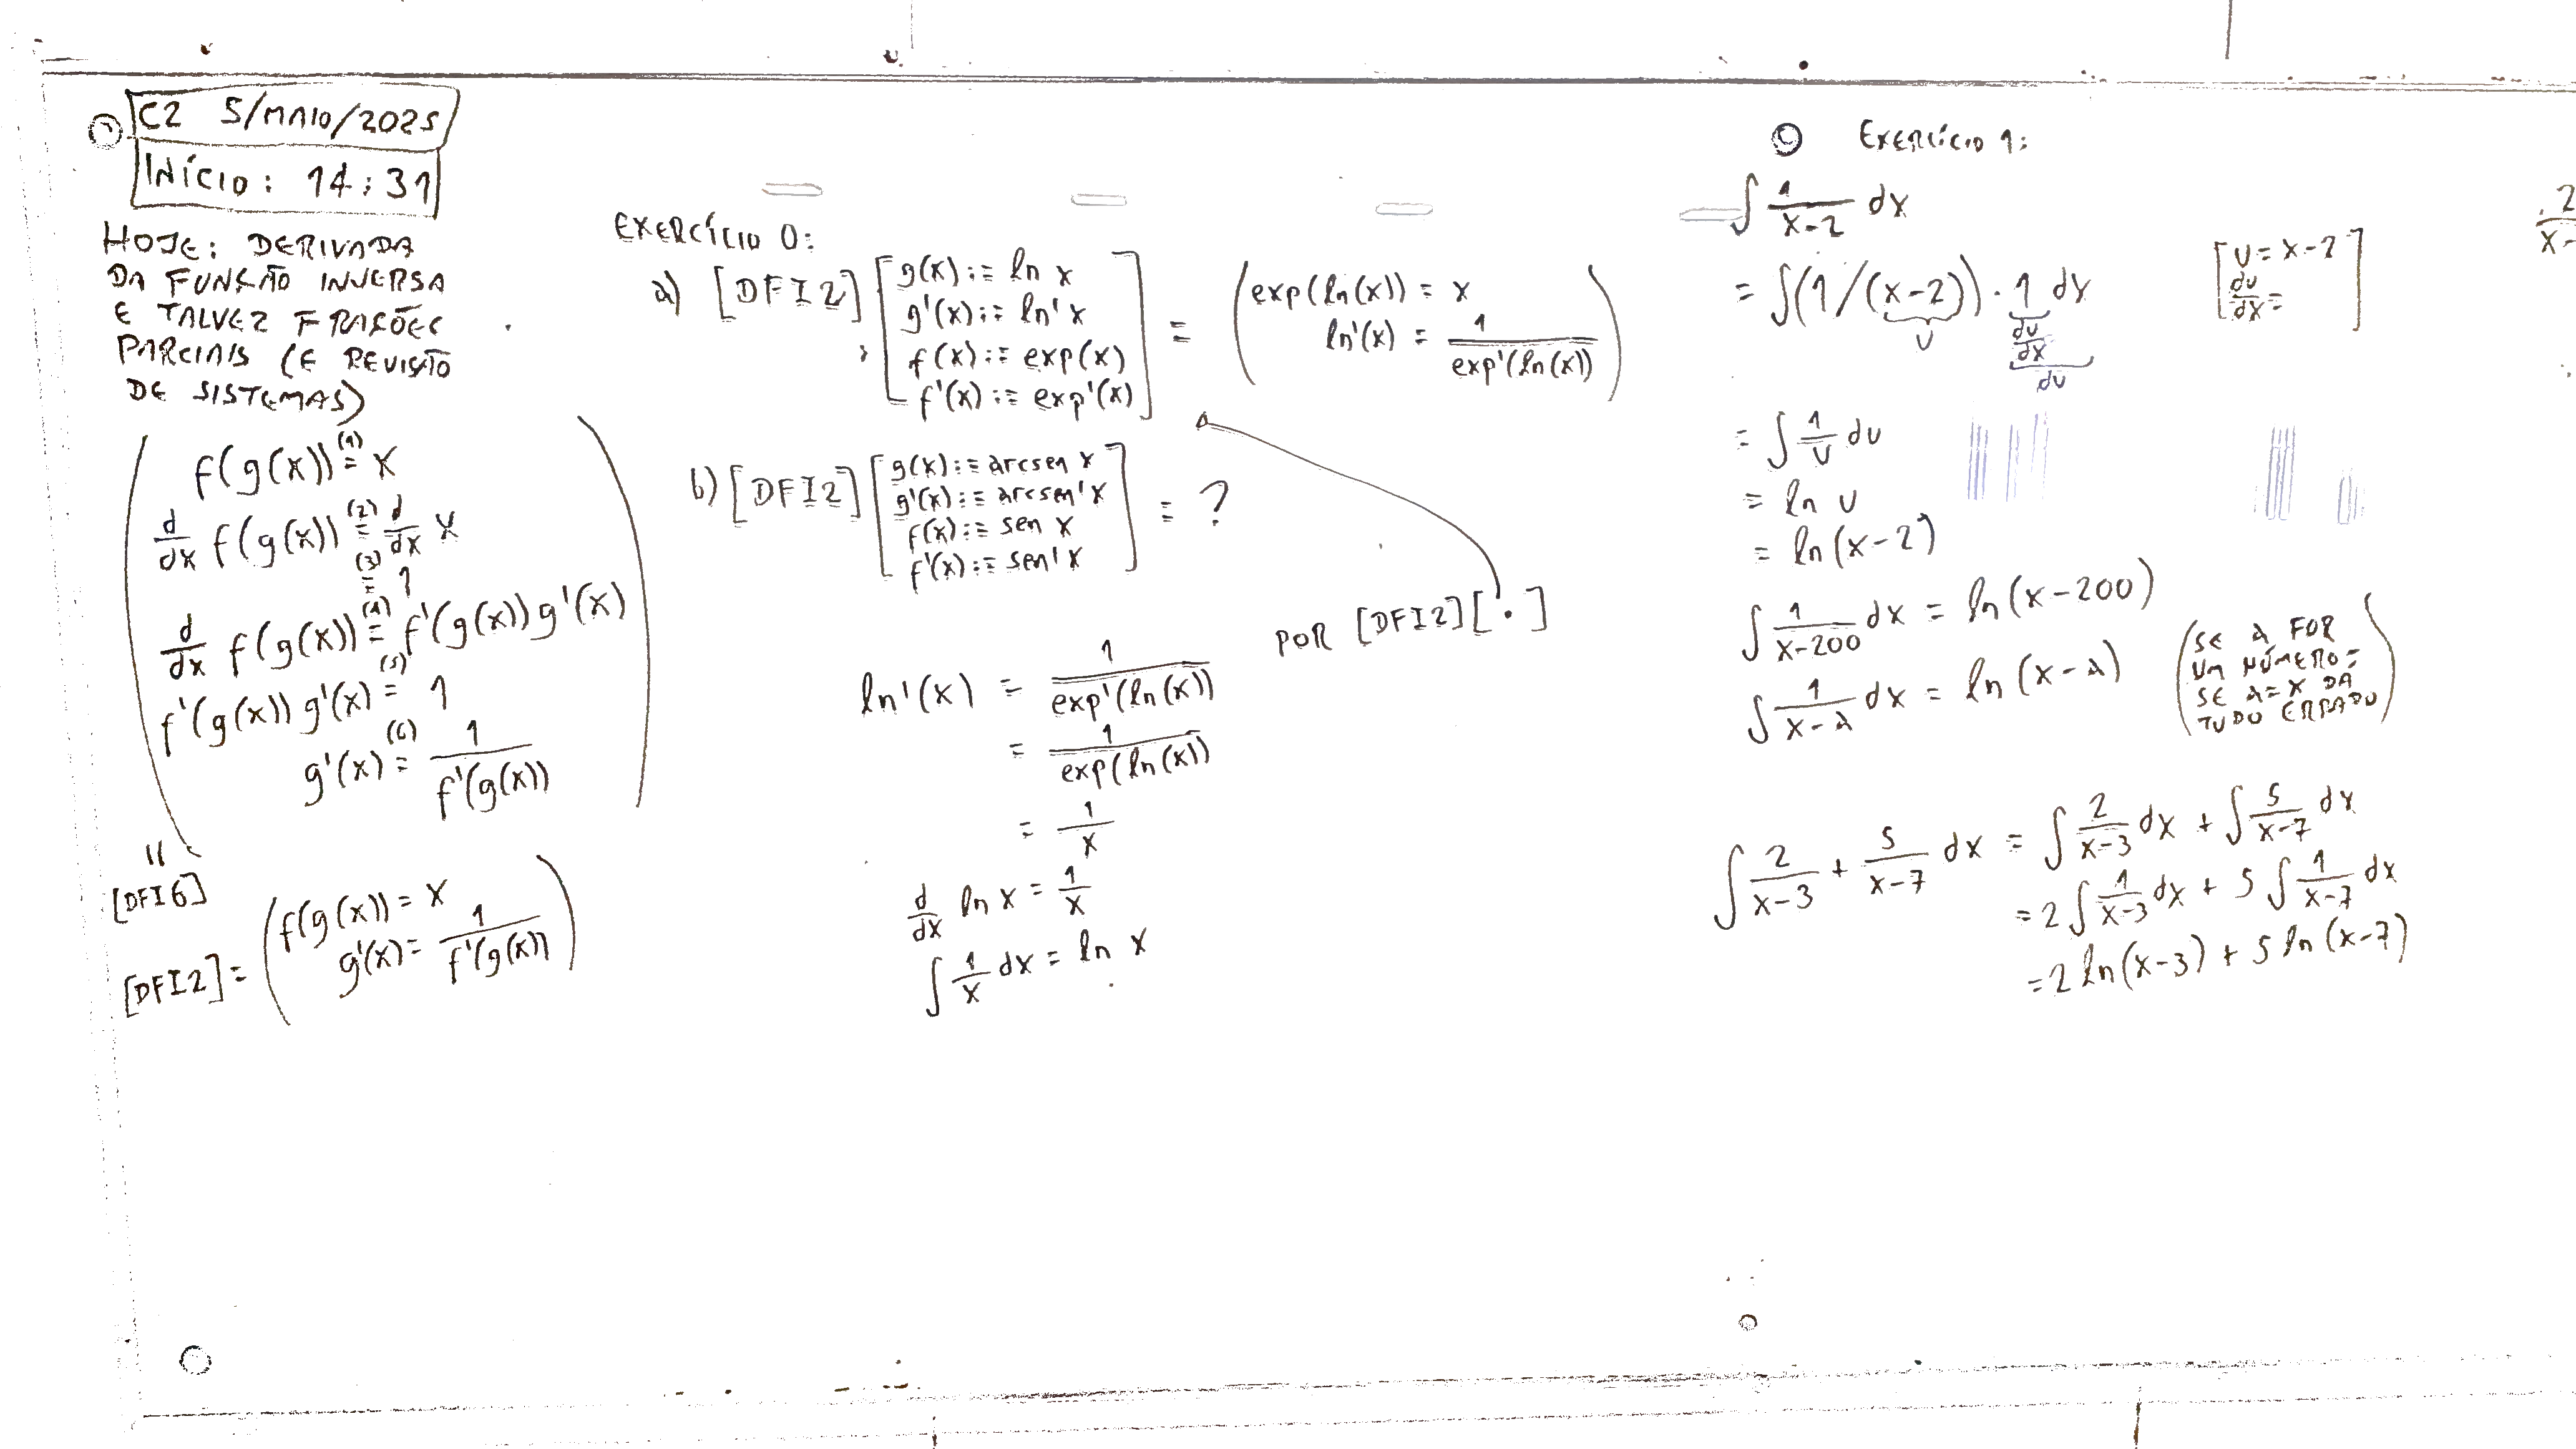 C2 5/MAIO/2025
INÍCIO: 14:31
HOJE: DERIVADA
DA FUNÇÃO INVERSA
E TALVEZ FRAÇÕES
PARCIAIS (E REVISÃO
DE SISTEMAS)
f(g(x)) (1)= x
d/dx f(g(x)) (2)= d/dx x
(3)= 1
d/dx f(g(x)) (4)= f'(g(x)) g'(x)
f'(g(x)) g'(x) (5)= 1
g'(x) (6)= 1/f'(g(x))
"
[DFI6]
[DFI2] = ( f(g(x)) = x
g'(x) = 1/f'(g(x)) )
EXERCÍCIO 0:
a) [DFI2] [ g(x) := ln x
g'(x) := ln' x
f(x) := exp(x)
f'(x) := exp'(x) ] = ( exp(ln(x)) = x
ln'(x) = 1/exp'(ln(x)) )
b) [DFI2] [ g(x) := arcsen x
g'(x) := arcsen' x
f(x) := sen x
f'(x) := sen' x ] = ?
ln'(x) = 1/exp'(ln(x)) POR [DFI2][·]
= 1/exp(ln(x))
= 1/x
d/dx ln x = 1/x
∫ 1/x dx = ln x
EXERCÍCIO 1:
∫ 1/(x-2) dx
= ∫(1/(x-2)) · 1 dx [ u = x-2
u du/dx du/dx = ]
du
= ∫ 1/u du
= ln u
= ln(x-2)
∫ 1/(x-200) dx = ln(x-200)
∫ 1/(x-a) dx = ln(x-a) (SE a FOR
UM NÚMERO;
SE a=x DA
TUDO ERRADO)
∫ 2/(x-3) + 5/(x-7) dx = ∫ 2/(x-3) dx + ∫ 5/(x-7) dx
= 2 ∫ 1/(x-3) dx + 5 ∫ 1/(x-7) dx
= 2 ln(x-3) + 5 ln(x-7)
2
x-